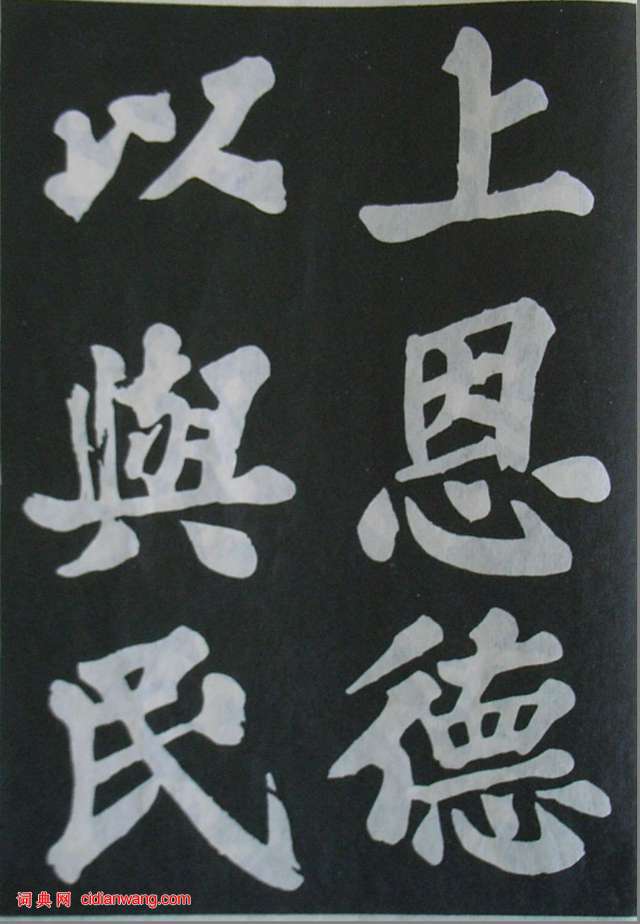 上恩德
以與民
词典网 cidianwang.com